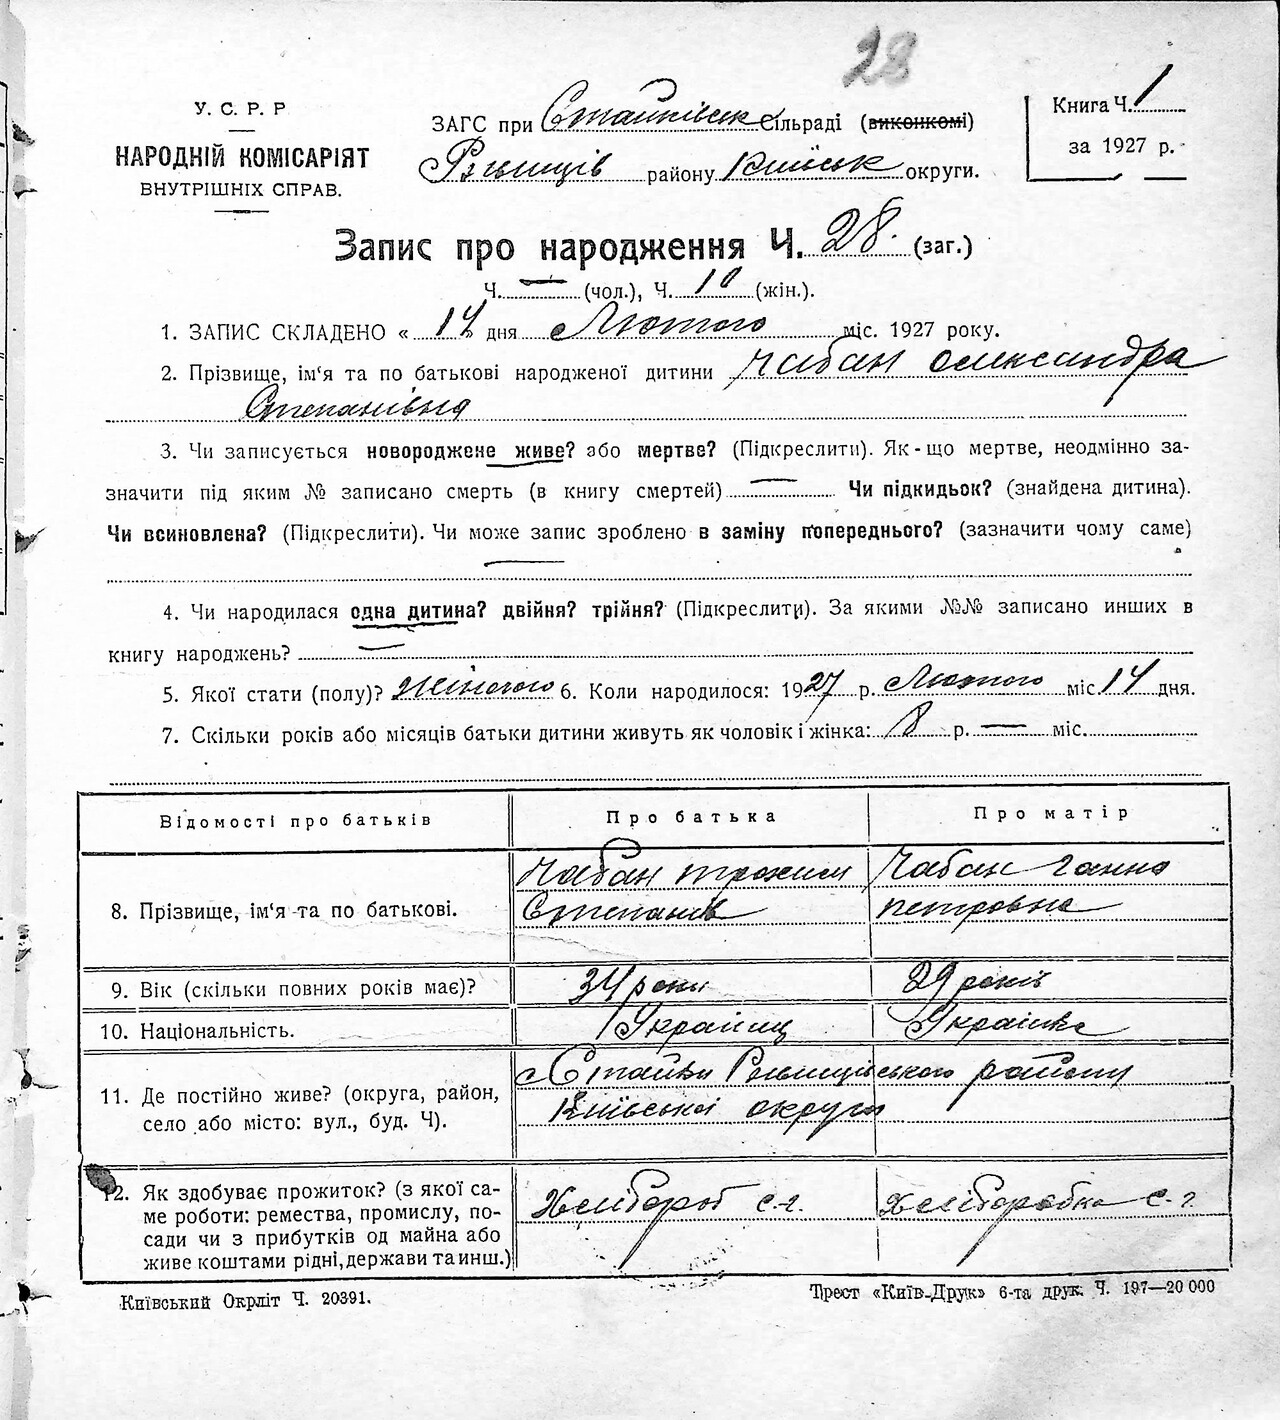 28
У. С. Р. Р
НАРОДНІЙ КОМІСАРІЯТ
ВНУТРІШНІХ СПРАВ.
ЗАГС при Стайківськ Сільраді (виконкомі)
Ржищів району Київськ округи.
Книга Ч. 1
за 1927 р.
Запис про народження Ч. 28. (заг.)
Ч. — (чол.), Ч. 10 (жін.).
1. ЗАПИС СКЛАДЕНО « 14 » дня Лютого міс. 1927 року.
2. Прізвище, ім‘я та по батькові народженої дитини Чабан Олександра
Степанівна
3. Чи записується новороджене живе? або мертве? (Підкреслити). Як-що мертве, неодмінно за-
значити під яким № записано смерть (в книгу смертей) — Чи підкидьок? (знайдена дитина).
Чи всиновлена? (Підкреслити). Чи може запис зроблено в заміну попереднього? (зазначити чому саме)
—
4. Чи народилася одна дитина? двійня? трійня? (Підкреслити). За якими №№ записано инших в
книгу народжень? —
5. Якої стати (полу)? Жіночого 6. Коли народилося: 1927 р. Лютого міс 14 дня.
7. Скільки років або місяців батьки дитини живуть як чоловік і жінка: 8 р. — міс.
Відомості про батьків Про батька Про матір
Чабан Трохим Чабан Ганна
8. Прізвище, ім‘я та по батькові. Степанів Петровна
9. Вік (скільки повних років має)? 34 роки 29 років
10. Національність. Украинц Украінка
Стайки Ржищівського району
11. Де постійно живе? (округа, район,
Київської округи
село або місто: вул., буд. Ч).
12. Як здобуває прожиток? (з якої са-
Хлібороб с.-г. Хліборобка с.-г.
ме роботи: ремества, промислу, по-
сади чи з прибутків од майна або
живе коштами рідні, держави та инш.)
Київський Окрліт Ч. 20391.
Трест «Київ-Друк» 6-та друк. Ч. 197—20 000